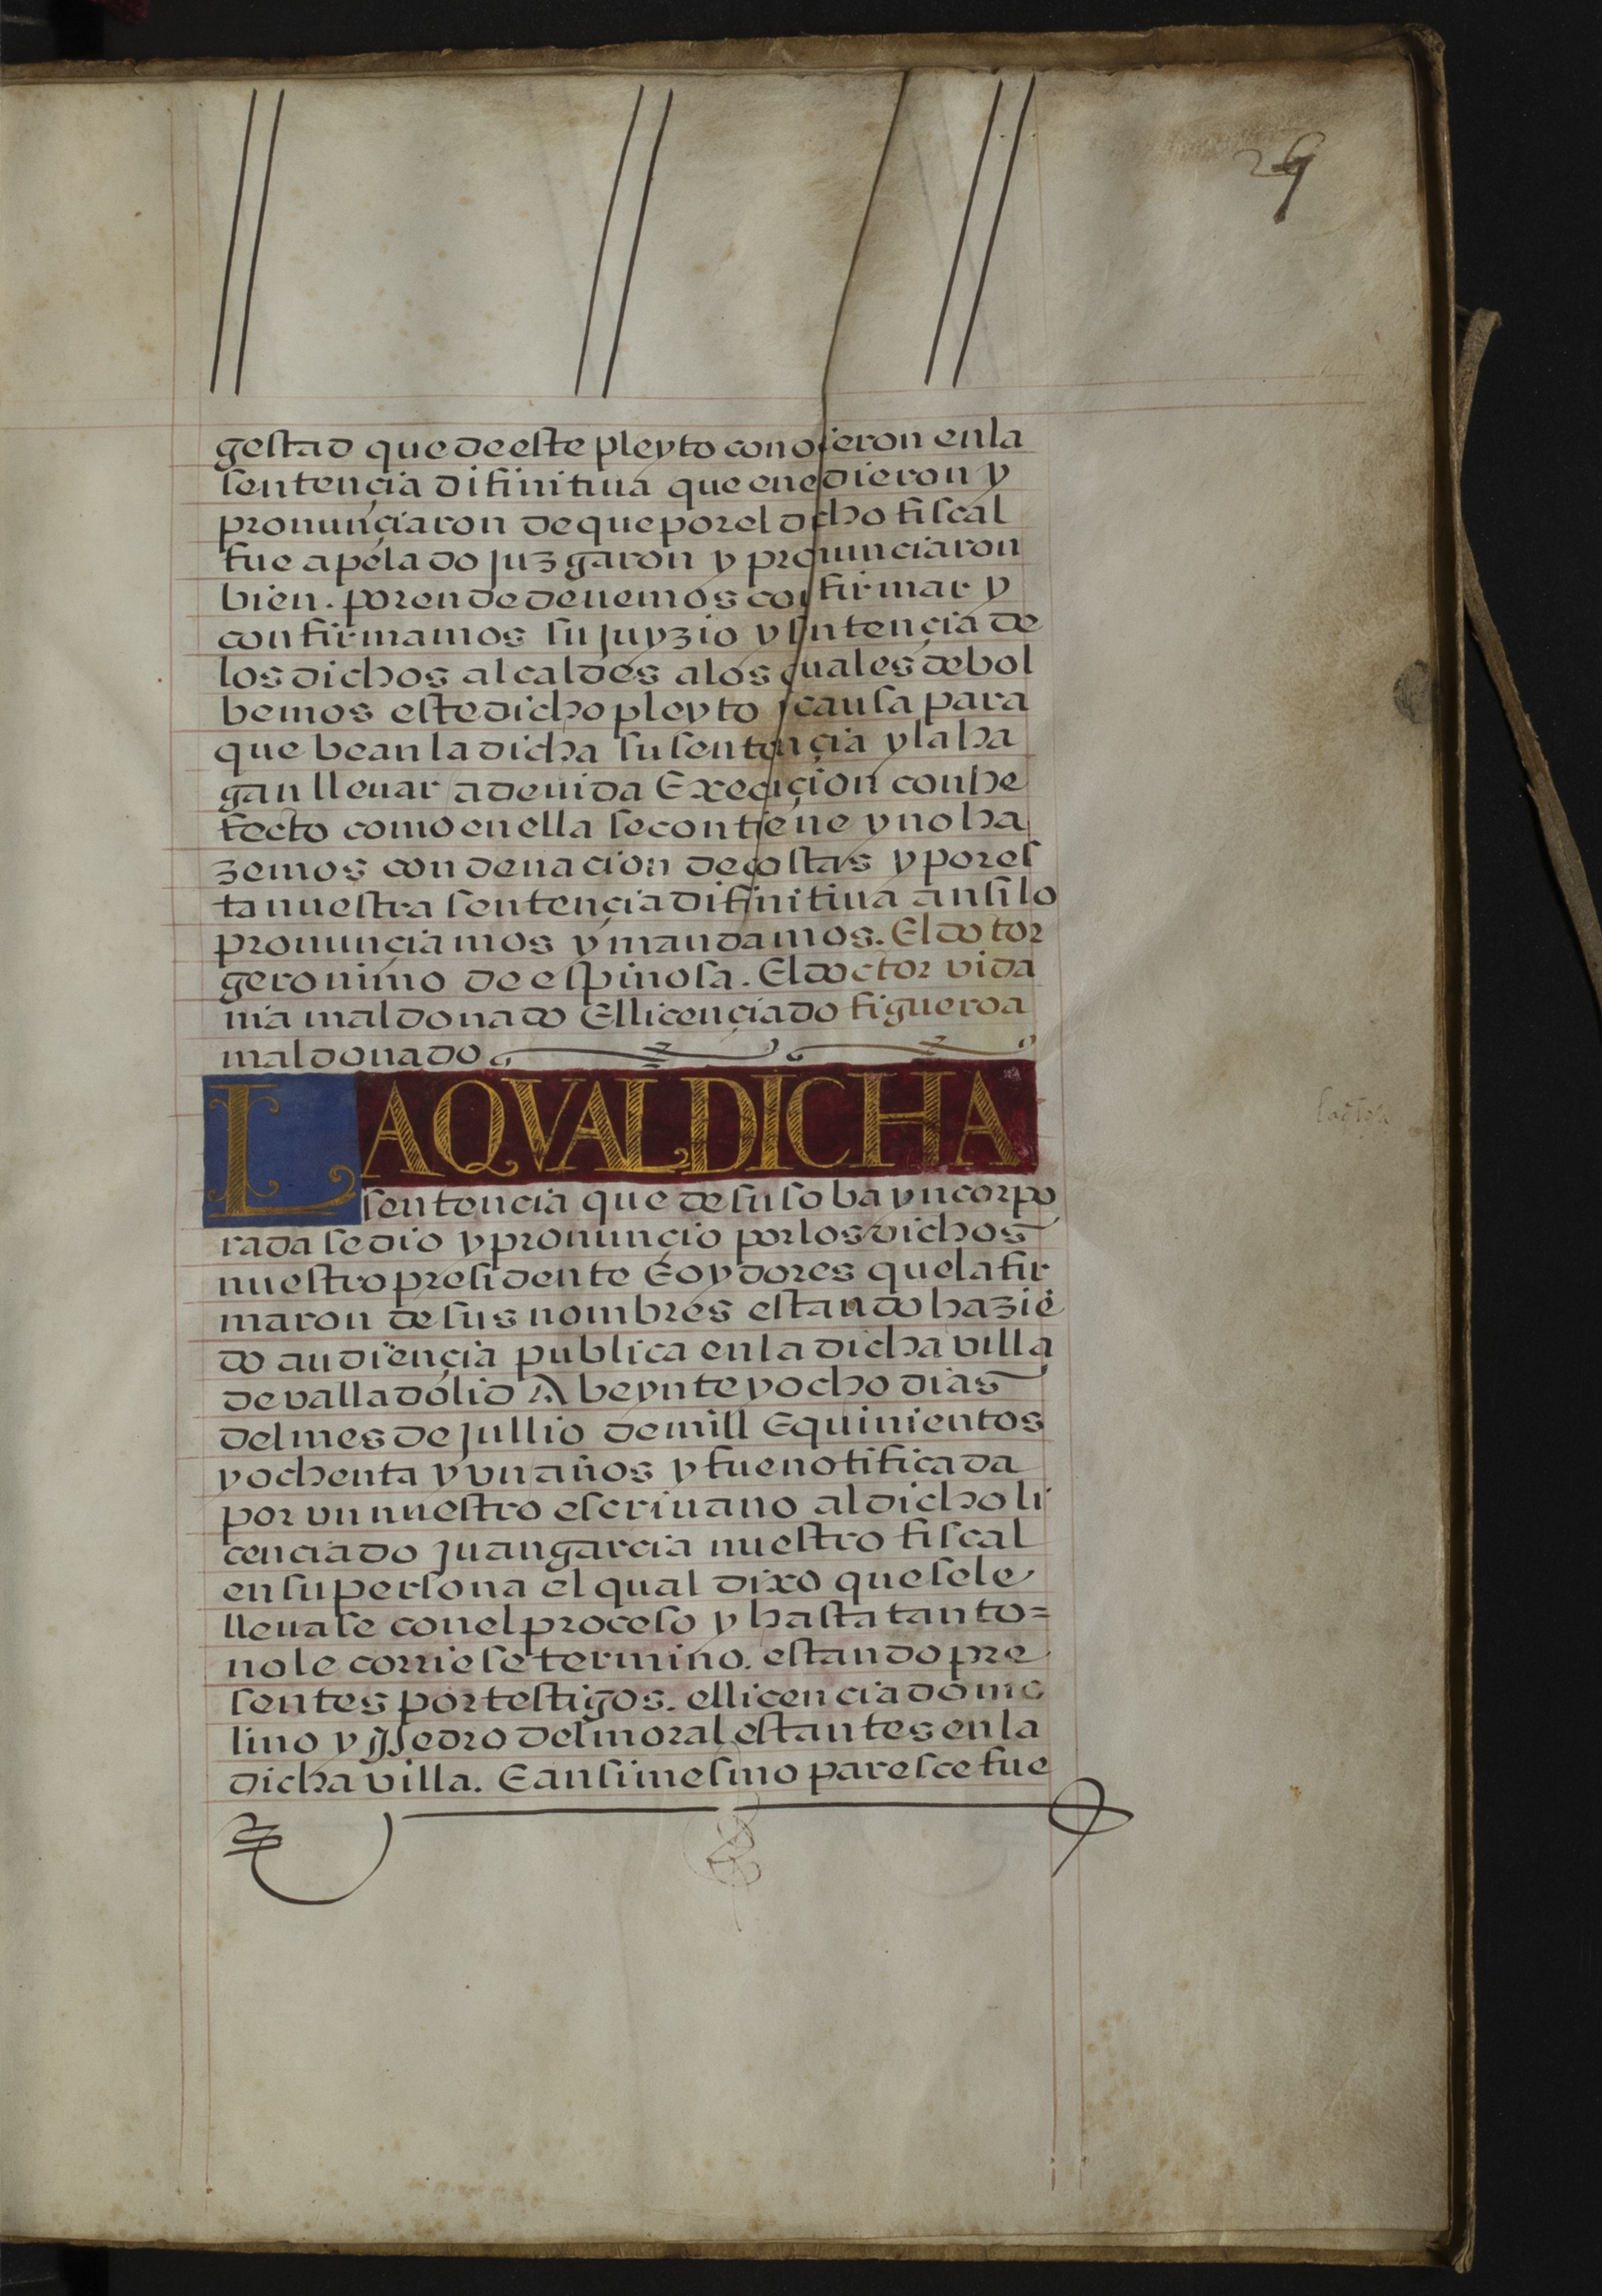 29
gestad que de este pleyto conoçieron en la
sentençia difinitiua que en el dieron y
pronunçiaron de que por el dicho fiscal
fue apelado juzgaron y pronunciaron
bien. por ende deuemos confirmar y
confirmamos su juyzio y sentençia de
los dichos alcaldes a los quales debol
bemos este dicho pleyto y causa para
que bean la dicha su sentençia y la ha
gan lleuar a deuida Execuçion con he
fecto como en ella se contiene y no ha
zemos condenacion de costas y por es
ta nuestra sentençia difinitiua ansi lo
pronunçiamos y mandamos. El dotor
geronimo de espinosa. El doctor vida
nia maldonado El licençiado figueroa
maldonado
LA QVAL DICHA
sentencia que de suso ba yncorpo
rada se dio y pronunçio por los dichos
nuestro presidente E oydores que la fir
maron de sus nombres estando haziē
do audiençia publica en la dicha villa
de valladolid A beynte y ocho dias
del mes de jullio de mill E quinientos
y ochenta y vn años y fue notificada
por vn nuestro escriuano al dicho li
cenciado juan garcia nuestro fiscal
en su persona el qual dixo que se le
lleuase con el proceso y hasta tanto=
no le corriese termino. estando pre
sentes por testigos. el licenciado mo
lino y Pedro del moral estantes en la
dicha villa. E ansimesmo paresce fue